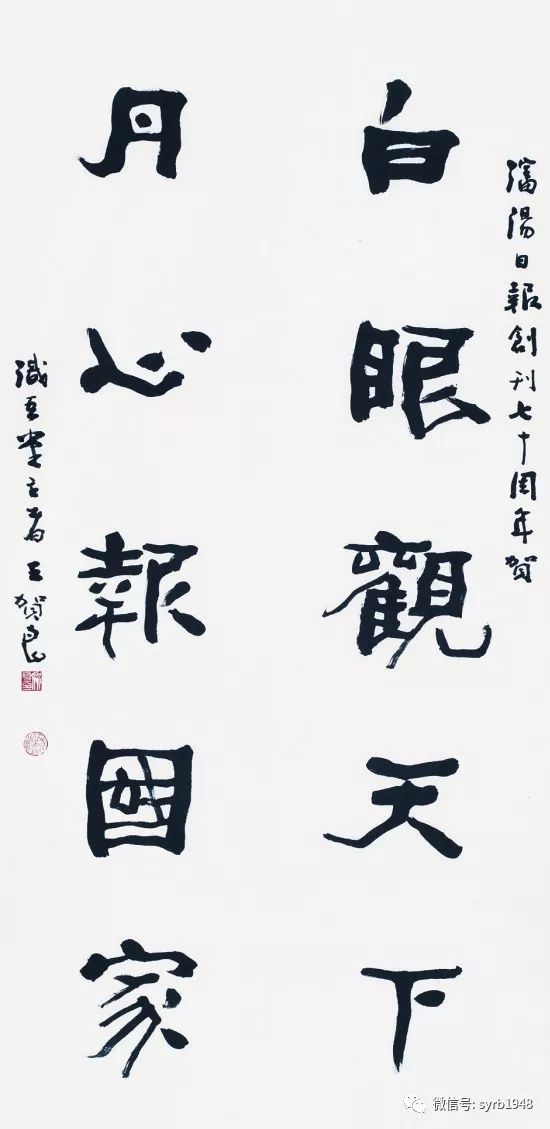 瀋陽日報創刊七十周年賀
白眼觀天下
丹心報國家
識吾堂主者王賀良
微信号: syrb1948